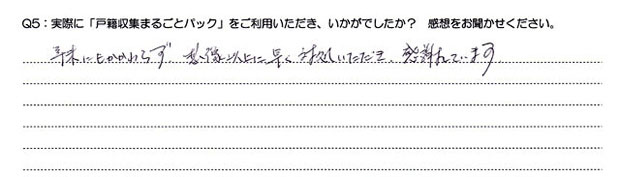 Q5：実際に「戸籍収集まるごとパック」をご利用いただき、いかがでしたか？ 感想をお聞かせください。
年末にもかかわらず、想像以上に早く対処いただき、感謝しています